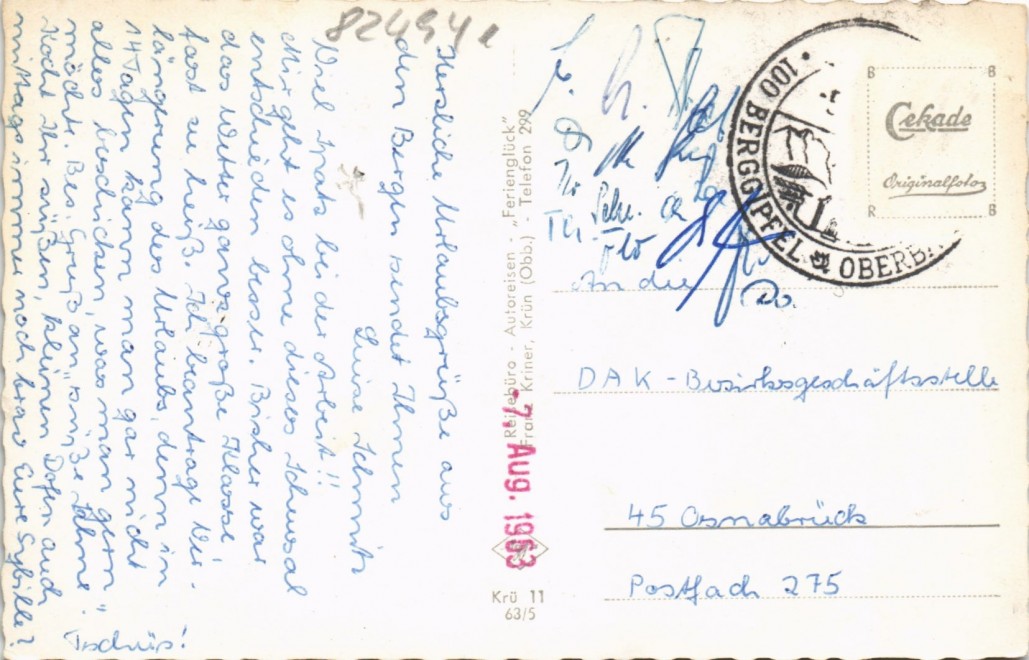 82494
Herzliche Urlaubsgrüße aus
den Bergen sendet Ihnen
Luise Schmitz
Viel Spaß bei der Arbeit!!
Mir geht es ohne dieses Scheusal
entschieden besser. Bisher war
das Wetter ganz große Klasse
fast zu heiß. Ich beantrage Ver-
längerung des Urlaubs, denn in
14 Tagen kann man gar nicht
alles besichtigen, was man gern
möcht. Besten Gruß an
Kocht Ihr süßen, kleinen Dofen auch
mittags immer noch brav Eure Sybille?
Tschüs!
Reisebüro - Autoreisen - „Ferienglück"
Franz Kriner, Krün (Obb.) - Telefon 299
-7. Aug. 1963
Krü 11
63/5
100 BERGGIPFEL
OBERB
Cekade
Originalfoto
B B
R B
An die
DAK - Bezirksgeschäftsstelle
45 Osnabrück
Postfach 275